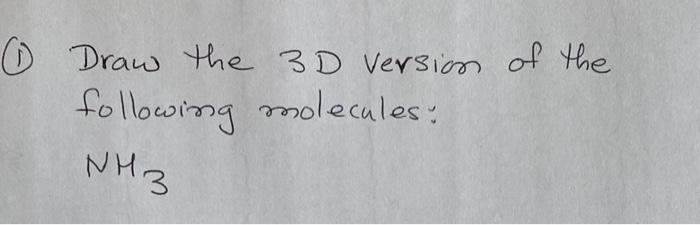 ① Draw the 3D version of the
following molecules:
NH3